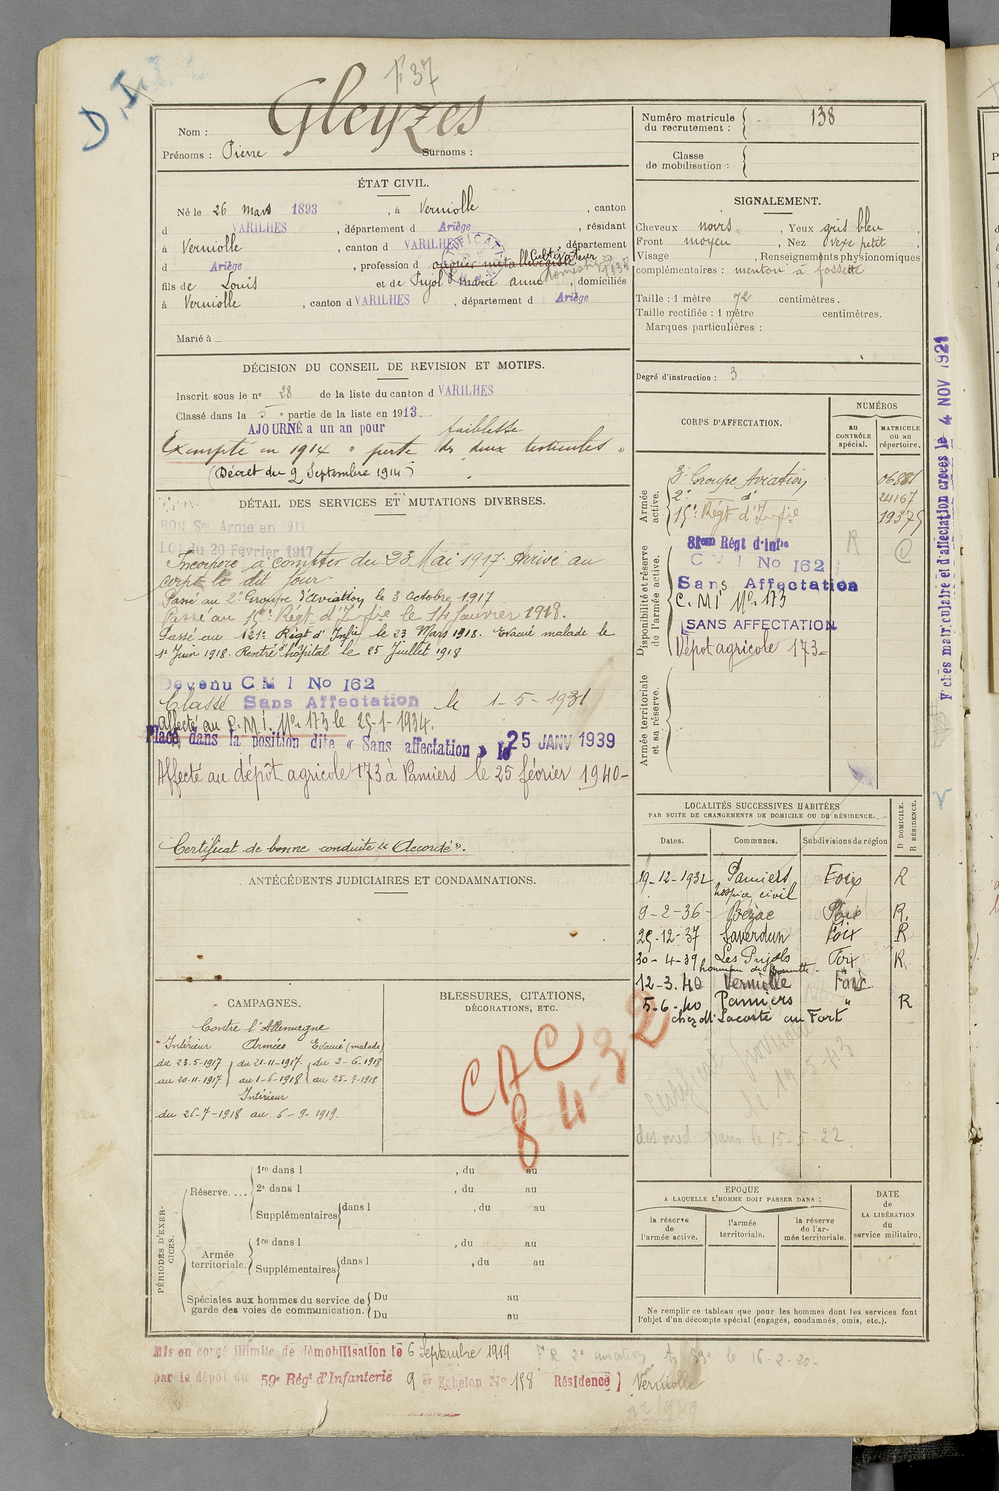 F 37
D
Nom : Gleyzes
Prénoms : Pierre Surnoms :
Numéro matricule du recrutement : 138
Classe de mobilisation :
ÉTAT CIVIL.
Né le 26 mars 1893, à Verniolle, canton
d VARILHES, département d Ariège, résidant
à Verniolle, canton d VARILHES, département
d Ariège, profession d ouvrier métallurgiste Cultivateur
domestique
fils de Louis et de Pujol Marie anne, domiciliés
à Verniolle, canton d VARILHES, département d Ariège
Marié à
SIGNALEMENT.
Cheveux noirs, Yeux gris bleu,
Front moyen, Nez vexe petit,
Visage, Renseignements physionomiques
complémentaires : menton à fossette
Taille : 1 mètre 72 centimètres.
Taille rectifiée : 1 mètre centimètres.
Marques particulières :
Degré d'instruction : 3
DÉCISION DU CONSEIL DE REVISION ET MOTIFS.
Inscrit sous le n° 28 de la liste du canton d VARILHES
Classé dans la 5e partie de la liste en 1913.
AJOURNÉ a un an pour faiblesse
Exempté en 1914 « perte des deux testicules »
(Décret du 9 Septembre 1914)
DÉTAIL DES SERVICES ET MUTATIONS DIVERSES.
BON Sce Armé en 1917
LOI du 20 Février 1917
Incorporé à compter du 23 Mai 1917. Arrivé au
corps le dit jour.
Passé au 2e Groupe d'aviation le 3 octobre 1917
Passé au 15e Régt d'Infie le 14 Janvier 1918.
Passé au 121e Régt d'Infie le 23 Mars 1918. Evacué malade le
1er Juin 1918. Rentré hôpital le 25 Juillet 1918
Devenu C M I No 162
Classé Sans Affectation le 1-5-1931
affecté au C.M.I. No 173 le 25-1-1934.
Placé dans la position dite « Sans affectation » le 25 JANV 1939
Affecté au dépôt agricole 173 à Pamiers le 25 février 1940-
Certificat de bonne conduite « Accordé ».
CORPS D'AFFECTATION.
NUMÉROS
au CONTRÔLE spécial.
MATRICULE OU AU répertoire.
Armée active.
3e Groupe Aviation
2e d°
24167
15e Régt d'Infie
19375
Disponibilité et réserve de l'armée active.
81eme Régt d'Infie
C M I No 162
Sans Affectation
C. M I No. 173
SANS AFFECTATION
Dépôt agricole 173
R
Armée territoriale et sa réserve.
Fiches matriculaire et d'affectation créées le 4 NOV 1921
ANTÉCÉDENTS JUDICIAIRES ET CONDAMNATIONS.
LOCALITÉS SUCCESSIVES HABITÉES
PAR SUITE DE CHANGEMENTS DE DOMICILE OU DE RÉSIDENCE.
D DOMICILE. R RÉSIDENCE.
Dates. Communes. Subdivisions de région
19-12-1932 Pamiers Foix R
hospice civil
9-2-36 Bézac Foix R.
25-12-37 Saverdun Foix R
30-4-39 Les Pujols Foix R
12-3.40 Verniolle Foix
5-6-40 Pamiers " R
chez M. Lacoste au Fort
CAMPAGNES.
Contre l'Allemagne
Intérieur Armées Evacué (malade)
du 23-5-1917 du 21-11-1917 du 2-6-1918
au 20-11-1917 au 1-6-1918 au 25-7-1918
Intérieur
du 26-7-1918 au 6-9-1919.
BLESSURES, CITATIONS,
DÉCORATIONS, ETC.
CAC
8 4-32
PÉRIODES D'EXERCICES.
Réserve....
1re dans l , du au
2e dans l , du au
Supplémentaires dans l , du au
Armée territoriale.
1re dans l , du au
Supplémentaires dans l , du au
Spéciales aux hommes du service de garde des voies de communication.
Du au
Du au
EPOQUE
A LAQUELLE L'HOMME DOIT PASSER DANS :
la réserve de l'armée active.
l'armée territoriale.
la réserve de l'armée territoriale.
DATE de LA LIBÉRATION du service militaire.
Ne remplir ce tableau que pour les hommes dont les services font
l'objet d'un décompte spécial (engagés, condamnés, omis, etc.).
Mis en congé illimité de démobilisation le 6 Septembre 1919
par le dépôt du 59e Régt d'Infanterie 9 er Echelon No 158 Résidence) Verniolle